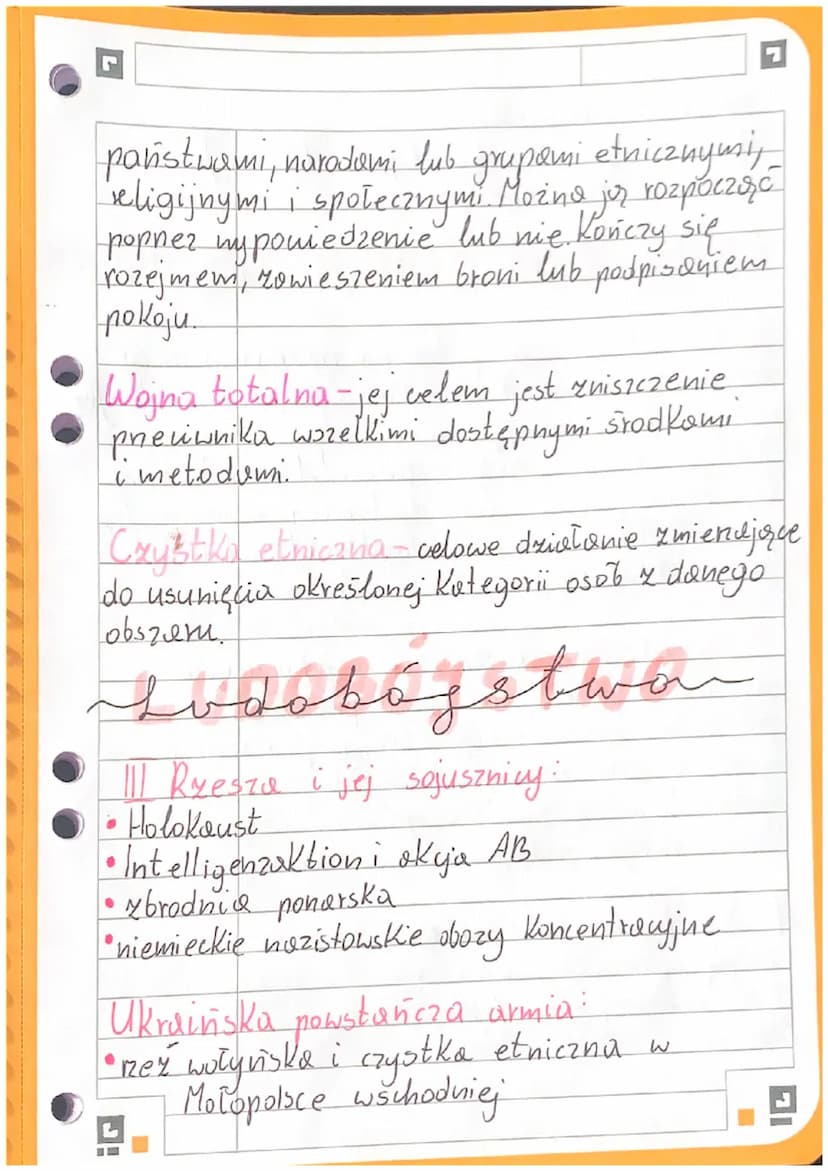 państwami, narodami lub grupami etnicznymi,
religijnymi i społecznymi. Można ją rozpocząć
poprzez wypowiedzenie lub nie. Kończy się
rozejmem, zawieszeniem broni lub podpisaniem
pokoju.
Wojna totalna - jej celem jest zniszczenie
przeciwnika wszelkimi dostępnymi środkami
i metodami.
Czystka etniczna - celowe działanie zmierzające
do usunięcia określonej kategorii osób z danego
obszaru.
Ludobójstwa
III Rzesza i jej sojusznicy:
• Holokaust
• Intelligenzaktion i akcja AB
• zbrodnia ponarska
• niemieckie nazistowskie obozy koncentracyjne
Ukraińska powstańcza armia:
• rzeź wołyńska i czystka etniczna w
Małopolsce wschodniej